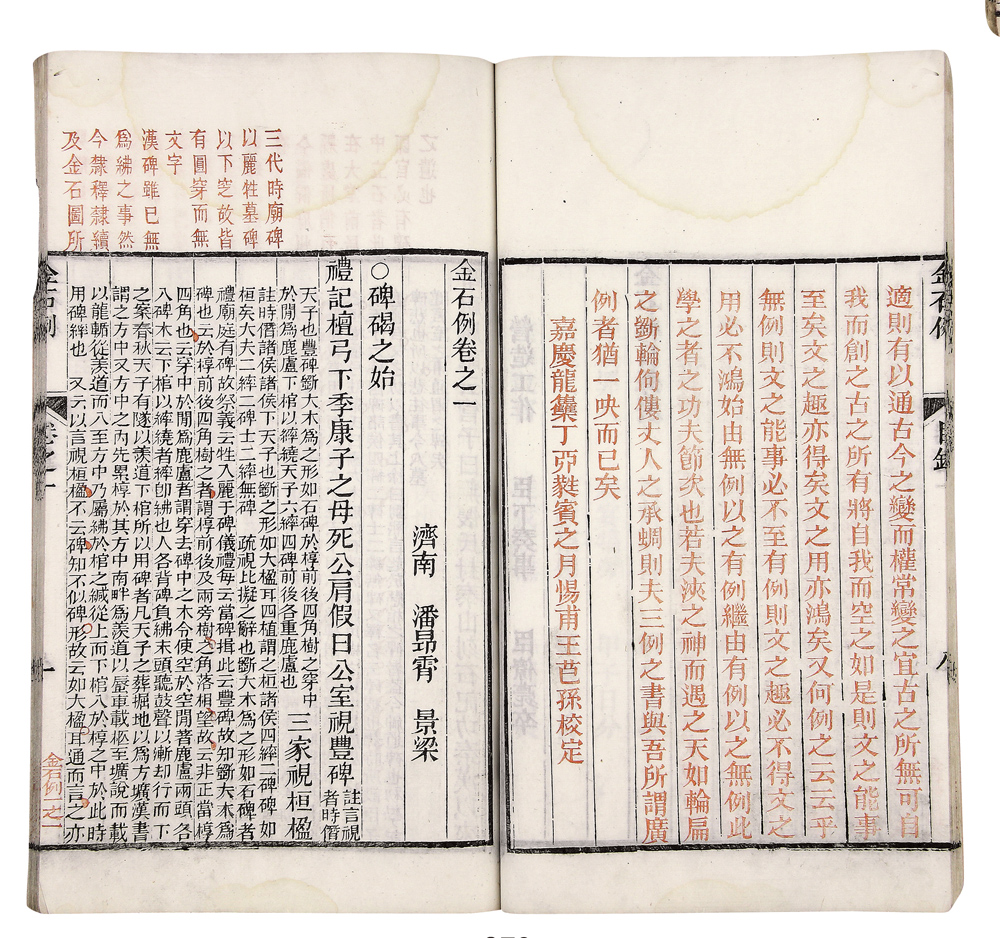 適則有以通古今之變而權常變之宜古之所無可自
我而創之古之所有將自我而空之如是則文之能事
至矣文之趣亦得矣文之用亦鴻矣又何例之云云乎
無例則文之能事必不至有例則文之趣必不得文之
用必不鴻始由無例以之有例繼由有例以之無例此
學之者之功夫節次也若夫浹之神而遇之天如輪扁
之斲輪佝僂丈人之承蜩則夫三例之書與吾所謂廣
例者猶一吷而已矣
嘉慶龍集丁卯蕤賓之月惕甫王芑孫校定
金石例 目錄 八
三代時廟碑
以麗牲墓碑
以下窆故皆
有圓穿而無
文字
漢碑雖已無
爲紼之事然
今隸釋隸續
及金石圖所
金石例卷之一
濟南 潘昂霄 景梁
○碑碣之始
禮記檀弓下季康子之母死公肩假曰公室視豐碑
註言視
者時僭
天子也豐碑斲大木爲之形如石碑於椁前後四角樹之穿中
於閒爲鹿盧下棺以繂繞天子六繂四碑前後各重鹿盧也
三家視桓楹
註時僭諸侯諸侯下天子也斲之形如大楹耳四植謂之桓諸侯四繂二碑碑如
桓矣大夫二繂二碑士二繂無碑 疏視比擬之辭也斲大木爲之形如石碑者
禮廟庭有碑故祭義云牲入麗于碑儀禮每云當碑揖此云豐碑故知斲大木爲
碑也云於椁前後四角樹之者謂椁前後及兩旁樹之角落相望故云非正當椁
四角也云穿中於閒爲鹿盧者謂穿去碑中之木令使空於空閒著鹿盧兩頭各
入碑木云下棺以繂繞者繂卽紼也人各背碑負紼末頭聽鼓聲以漸却行而下
之案春秋天子有隧以羨道下棺所以用碑者凡天子之葬掘地以爲方壙漢書
謂之方中又方中之內先累椁於其方中南畔爲羨道以蜃車載柩至壙說而載
以龍輴從羨道而入至方中乃屬紼於棺之緘從上而下棺入於椁之中於此時
用碑繂也 又云以言視桓楹不云碑知不似碑形故云如大楹耳通而言之亦
金石例 卷之一 一
金石例之一